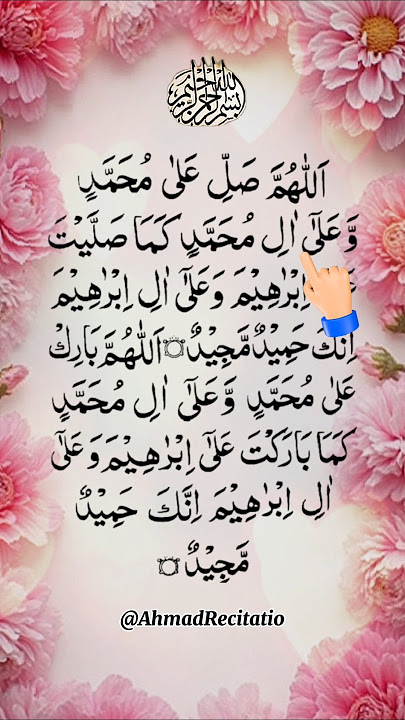 بسم الله الرحمن الرحيم
اَللّٰهُمَّ صَلِّ عَلٰى مُحَمَّدٍ
وَّعَلٰٓى اٰلِ مُحَمَّدٍ كَمَا صَلَّيْتَ
اِبْرٰهِيْمَ وَعَلٰٓى اٰلِ اِبْرٰهِيْمَ
اِنَّكَ حَمِيْدٌ مَّجِيْدٌ۝ اَللّٰهُمَّ بَارِكْ
عَلٰى مُحَمَّدٍ وَّعَلٰٓى اٰلِ مُحَمَّدٍ
كَمَا بَارَكْتَ عَلٰٓى اِبْرٰهِيْمَ وَعَلٰٓى
اٰلِ اِبْرٰهِيْمَ اِنَّكَ حَمِيْدٌ
مَّجِيْدٌ۝
@AhmadRecitatio